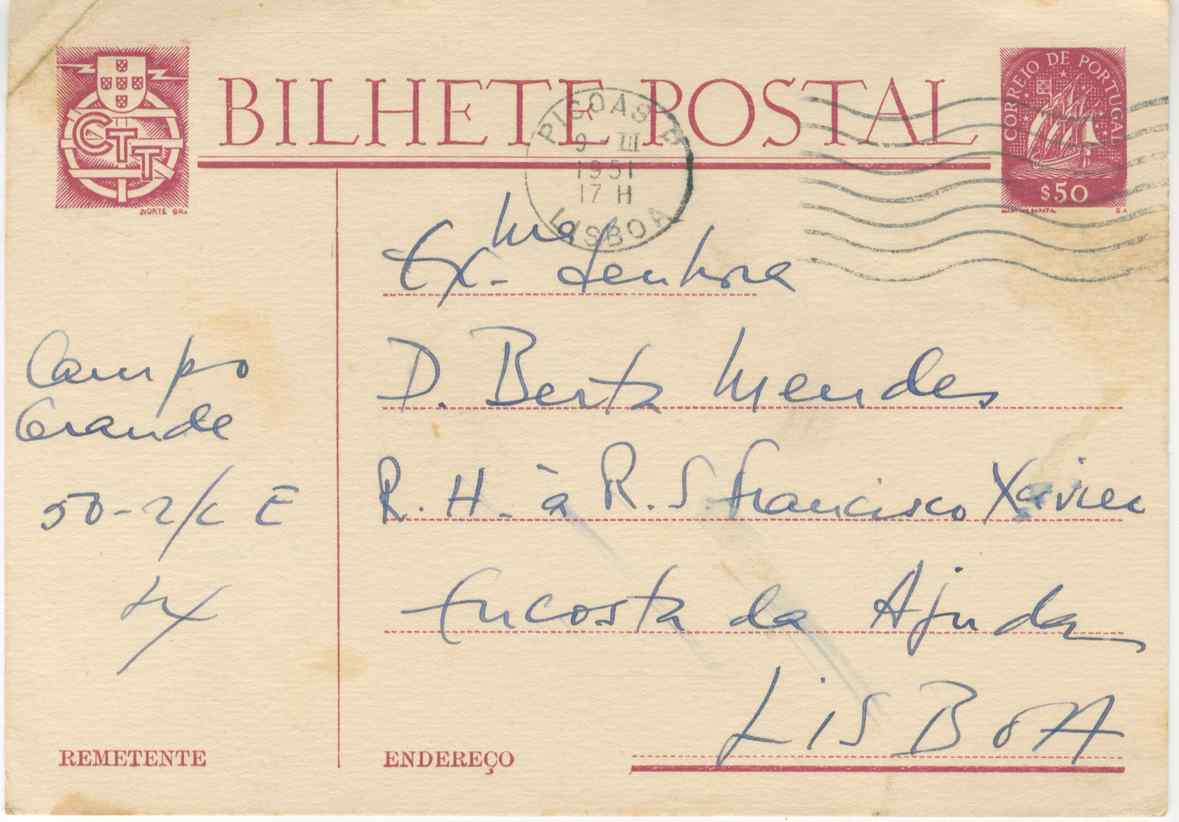 CTT
NORTE GRA.
BILHETE POSTAL
CORREIO DE PORTUGAL
$50
PICOAS
9 III
1951
17 H
LISBOA
Exma Senhora
D. Berta Mendes
R. H. à R. S. Francisco Xavier
Encosta da Ajuda
LISBOA
Campo
Grande
50-2/c E
LX
REMETENTE
ENDEREÇO